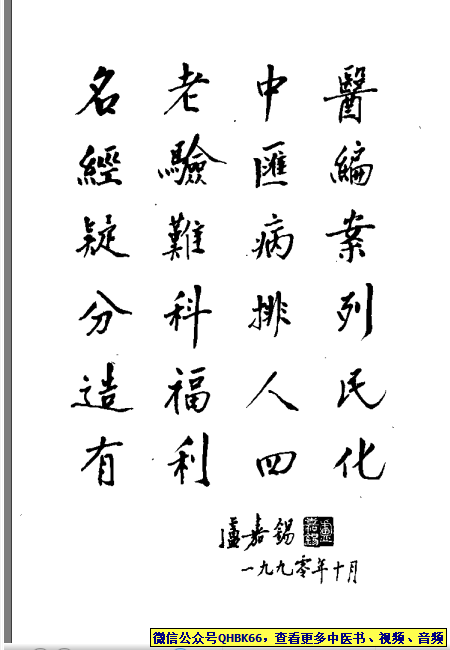 名老中醫
經驗匯編
疑難病案
分科排列
造福人民
有利四化
盧嘉錫
一九九零年十月
微信公众号QHBK66,查看更多中医书、视频、音频